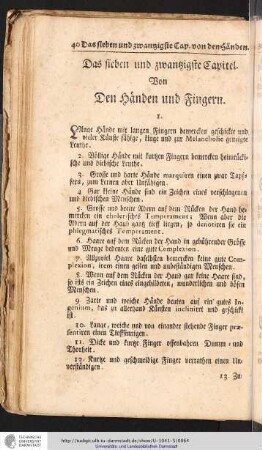 40 Das sieben und zwantzigste Cap. von den Händen.
Das sieben und zwantzigste Capitel.
Von
Den Händen und Fingern.
1.
Lange Hände mit langen Fingern bemercken geschickte und
vieler Künste fähige, kluge und zur Melancholie geneigte
Leuthe.
2. Völlige Hände mit kurtzen Fingern bemercken heimtückische
und diebische Leuthe.
3. Grosse und harte Hände marquiren einen zwar Tapffern,
zum Lernen aber Unfähigen.
4. Gar kleine Hände sind ein Zeichen eines verschlagenen
und diebischen Menschen.
5. Grosse und breite Adern auf dem Rücken der Hand bemercken
ein cholerisches Temperament; Wenn aber die
Adern auf der Hand gantz tieff liegen, so denotiren sie ein
phlegmatisches Temperament.
6. Haare auf dem Rücken der Hand in gebührender Grösse
und Menge bedeuten eine gute Complexion.
7. Allzuviel Haare daselbsten bemercken keine gute Complexion,
item einen geilen und unbeständigen Menschen.
8. Wenn auf dem Rücken der Hand gar keine Haare sind,
so ists ein Zeichen eines eingebildeten, wunderlichen und bösen
Menschen.
9. Zarte und weiche Hände deuten auf ein gutes Ingenium,
das zu allerhand Künsten incliniret und geschickt
ist.
10. Lange, weiche und von einander stehende Finger præsentiren
einen Tieffsinnigen.
11. Dicke und kurtze Finger offenbahren Dumm- und
Thorheit.
12. Kurtze und geschmeidige Finger verrathen einen Unverständigen.
13. Zu
http://tudigit.ulb.tu-darmstadt.de/show/
Universitäts- und Landesbibliothek Darmstadt